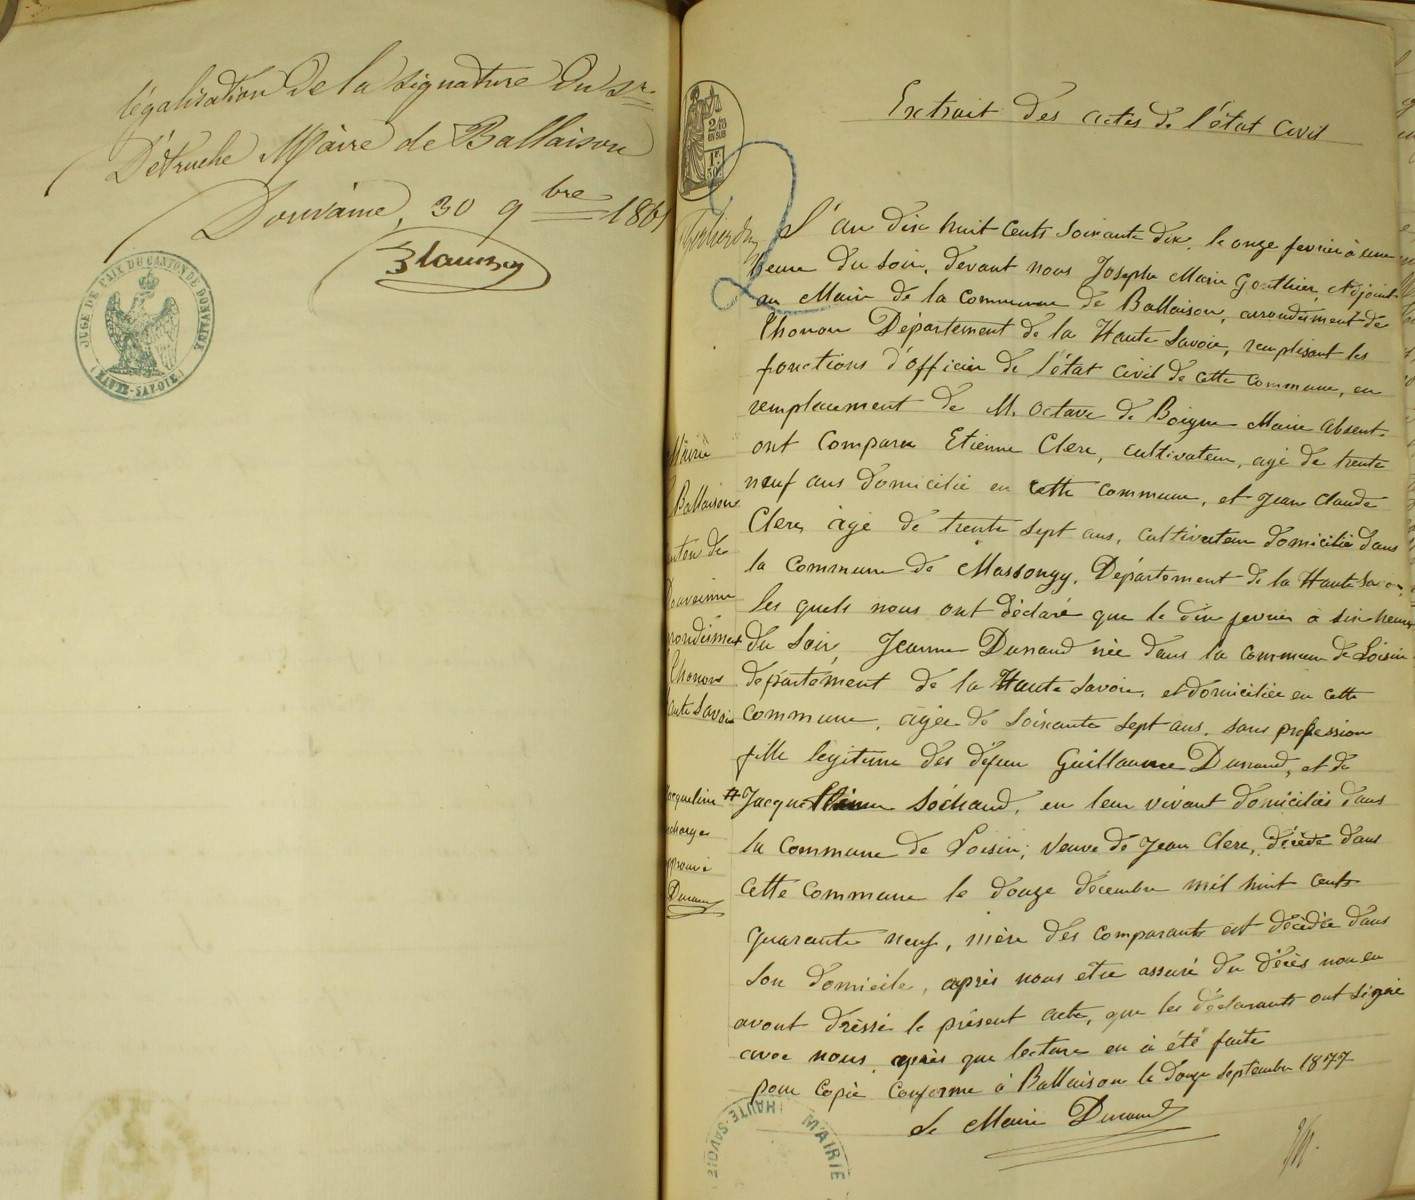 légalisation de la signature du Sr.
Détruche Maire de Ballaison
Douvaine, 30 9bre 1861
JUGE DE PAIX DU CANTON DE DOUVAINE
(HAUTE-SAVOIE)
Extrait des actes de l'état civil
2/10
EN SUS
1F
50
L'an dix huit cents soixante dix, le onze fevrier à une
heure du soir, devant nous Joseph Marie Gonthier, Adjoint
au Maire de la commune de Ballaison, arrondisment de
Thonon Département de la Haute Savoie, remplisant les
fonctions d'officier de l'état civil de cette commune, en
remplacement de M. Octave de Boigne Maire absent.
ont comparu Etienne Clerc, cultivateur, agé de trente
neuf ans domicilié en cette commune, et Jean Claude
Clerc âgé de trente sept ans, cultivateur domicilié dans
la commune de Massongy, Département de la Haute Savoie,
les quels nous ont déclaré que le dix fevrier à six heures
du soir Jeanne Dunand née dans la commune de Loisin
département de la Haute Savoie, et domiciliée en cette
commune, agée de soixante sept ans, sans profession
fille legitime des défun Guillaume Dunand, et de
# Jacque Sóchaud, en leur vivant domiciliés dans
la commune de Loisin; veuve de Jean Clerc, décédé dans
cette commune le douze décembre mil huit cents
quarante neuf, mère des comparants est décédée dans
son domicile, après nous etre assuré du décès nous en
avont dréssé le présent acte, que les déclarants ont signé
avec nous, après que lecture en à été faite
pour copie conforme à Ballaison le douze septembre 1877
Le Maire Dunand
Mairie
Ballaison
nton de
Douvaine
rrondisment
Thonon
aute Savoie
acqueline
Dunand
MAIRIE
HAUTE-SAVOIE